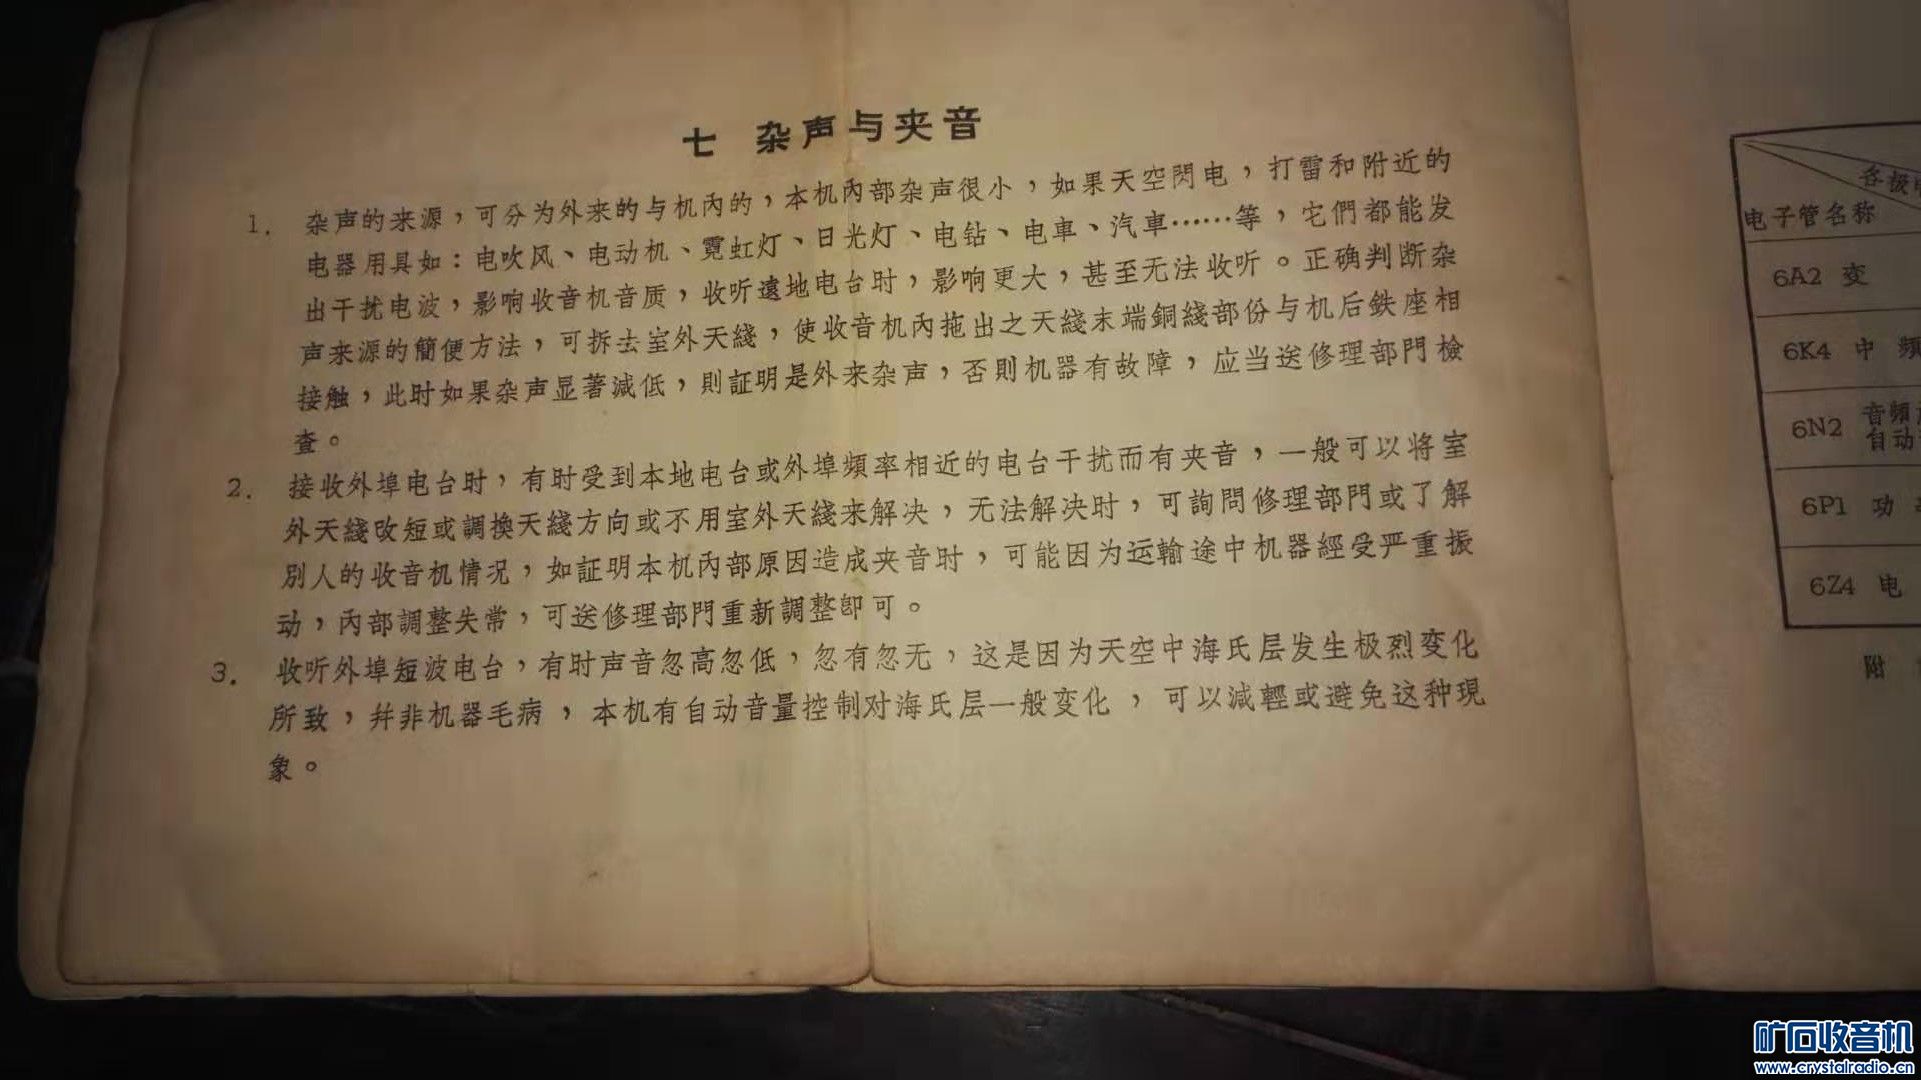 七 杂声与夹音
1. 杂声的来源，可分为外来的与机內的，本机內部杂声很小，如果天空閃电，打雷和附近的
电器用具如：电吹风、电动机、霓虹灯、日光灯、电钻、电車、汽車……等，它們都能发
出干扰电波，影响收音机音质，收听遠地电台时，影响更大，甚至无法收听。正确判断杂
声来源的簡便方法，可拆去室外天綫，使收音机內拖出之天綫末端銅綫部份与机后鉄座相
接触，此时如果杂声显著減低，則証明是外来杂声，否則机器有故障，应当送修理部門檢
查。
2. 接收外埠电台时，有时受到本地电台或外埠頻率相近的电台干扰而有夹音，一般可以将室
外天綫改短或調換天綫方向或不用室外天綫来解决，无法解决时，可詢問修理部門或了解
別人的收音机情况，如証明本机內部原因造成夹音时，可能因为运輸途中机器經受严重振
动，內部調整失常，可送修理部門重新調整卽可。
3. 收听外埠短波电台，有时声音忽高忽低，忽有忽无，这是因为天空中海氏层发生极烈变化
所致，幷非机器毛病，本机有自动音量控制对海氏层一般变化，可以減輕或避免这种現
象。
各极
电子管名称
6A2 变
6K4 中 頻
6N2 音頻
自动
6P1 功
6Z4 电
附
矿石收音机
www.crystalradio.cn